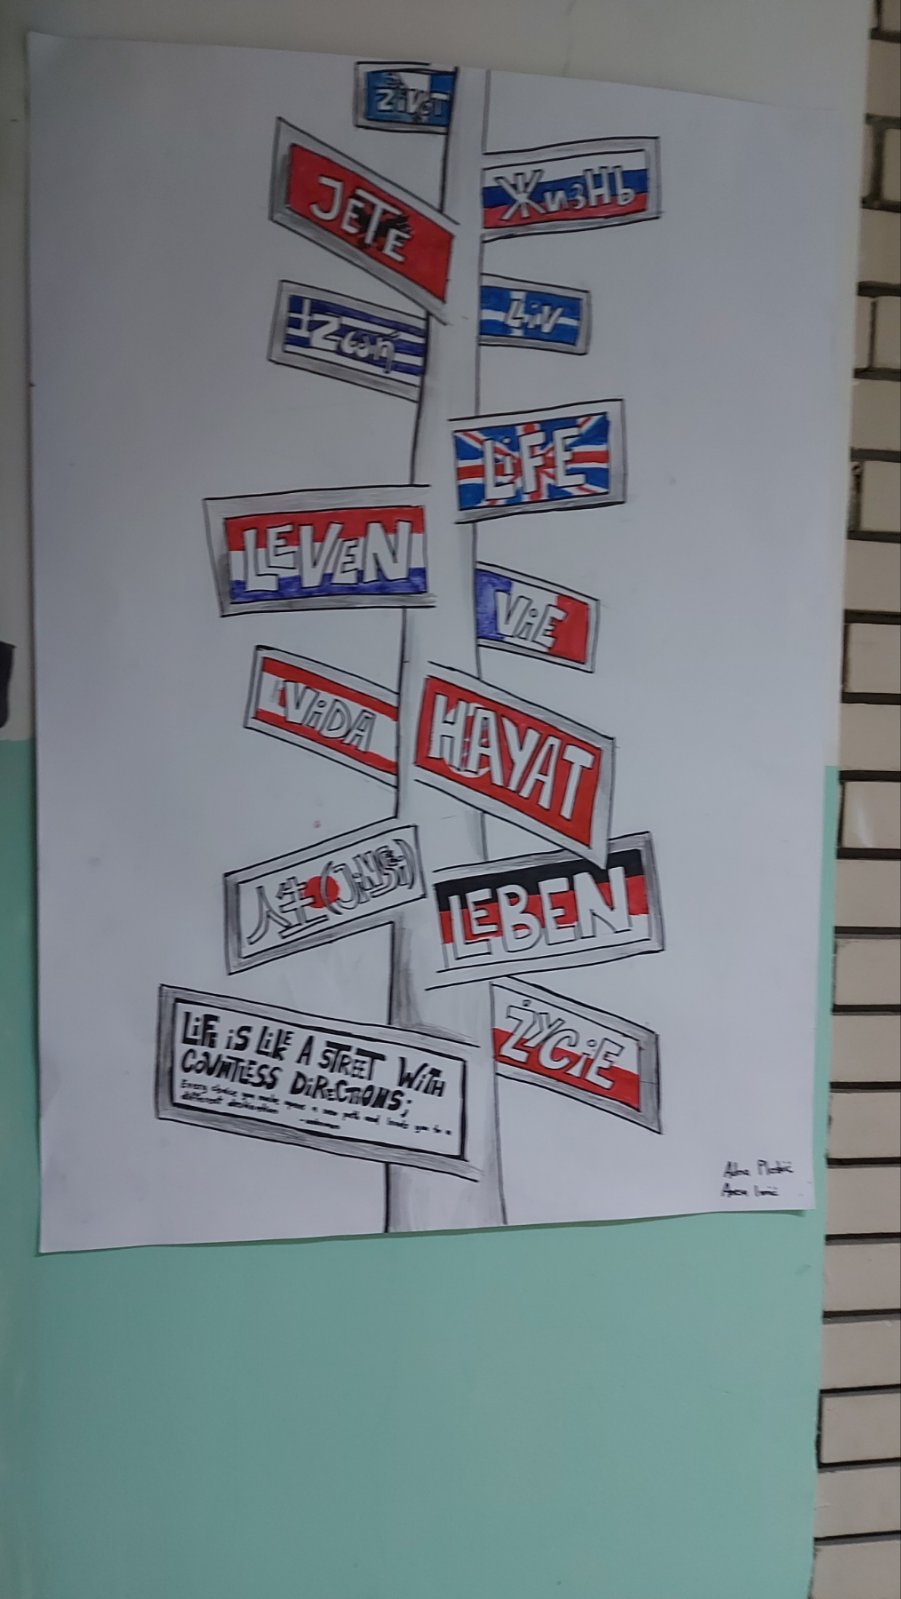 Život
JETE
Жизнь
Ζωή
Liv
LiFE
LEVEN
ViE
ViDA
HAYAT
人生(JiNSEi)
LEBEN
ŻYCiE
LiFE iS LiKE A STREET WiTH
COUNTLESS DiRECTiONS;
Every choice you make opens a new path and leads you to a
different destination
-unknown